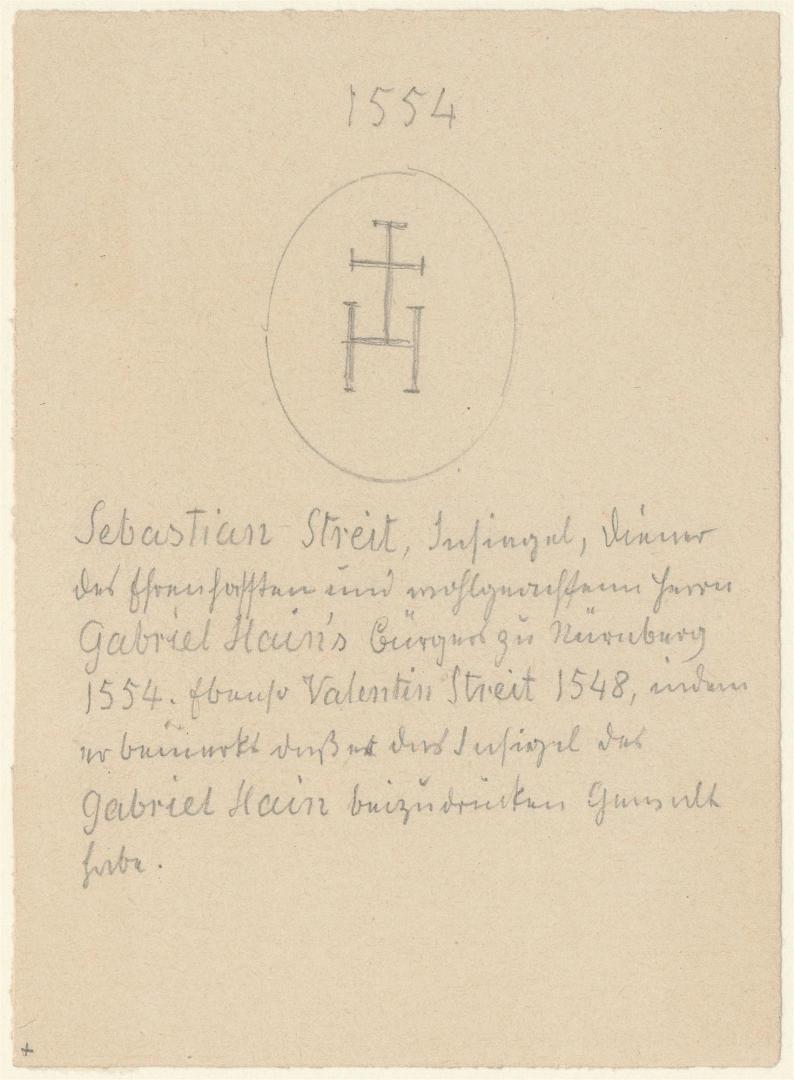 1554
H
Sebastian Streit, Insiegel, Diener
des Ehrenhafften und wohlgeachtenn Herrn
Gabriel Hain's Bürgers zu Nürnberg
1554. Ebenso Valentin Streit 1548, indem
er bemerkt daß er das Insiegel des
Gabriel Hain beizudrücken Gewalt
habe.